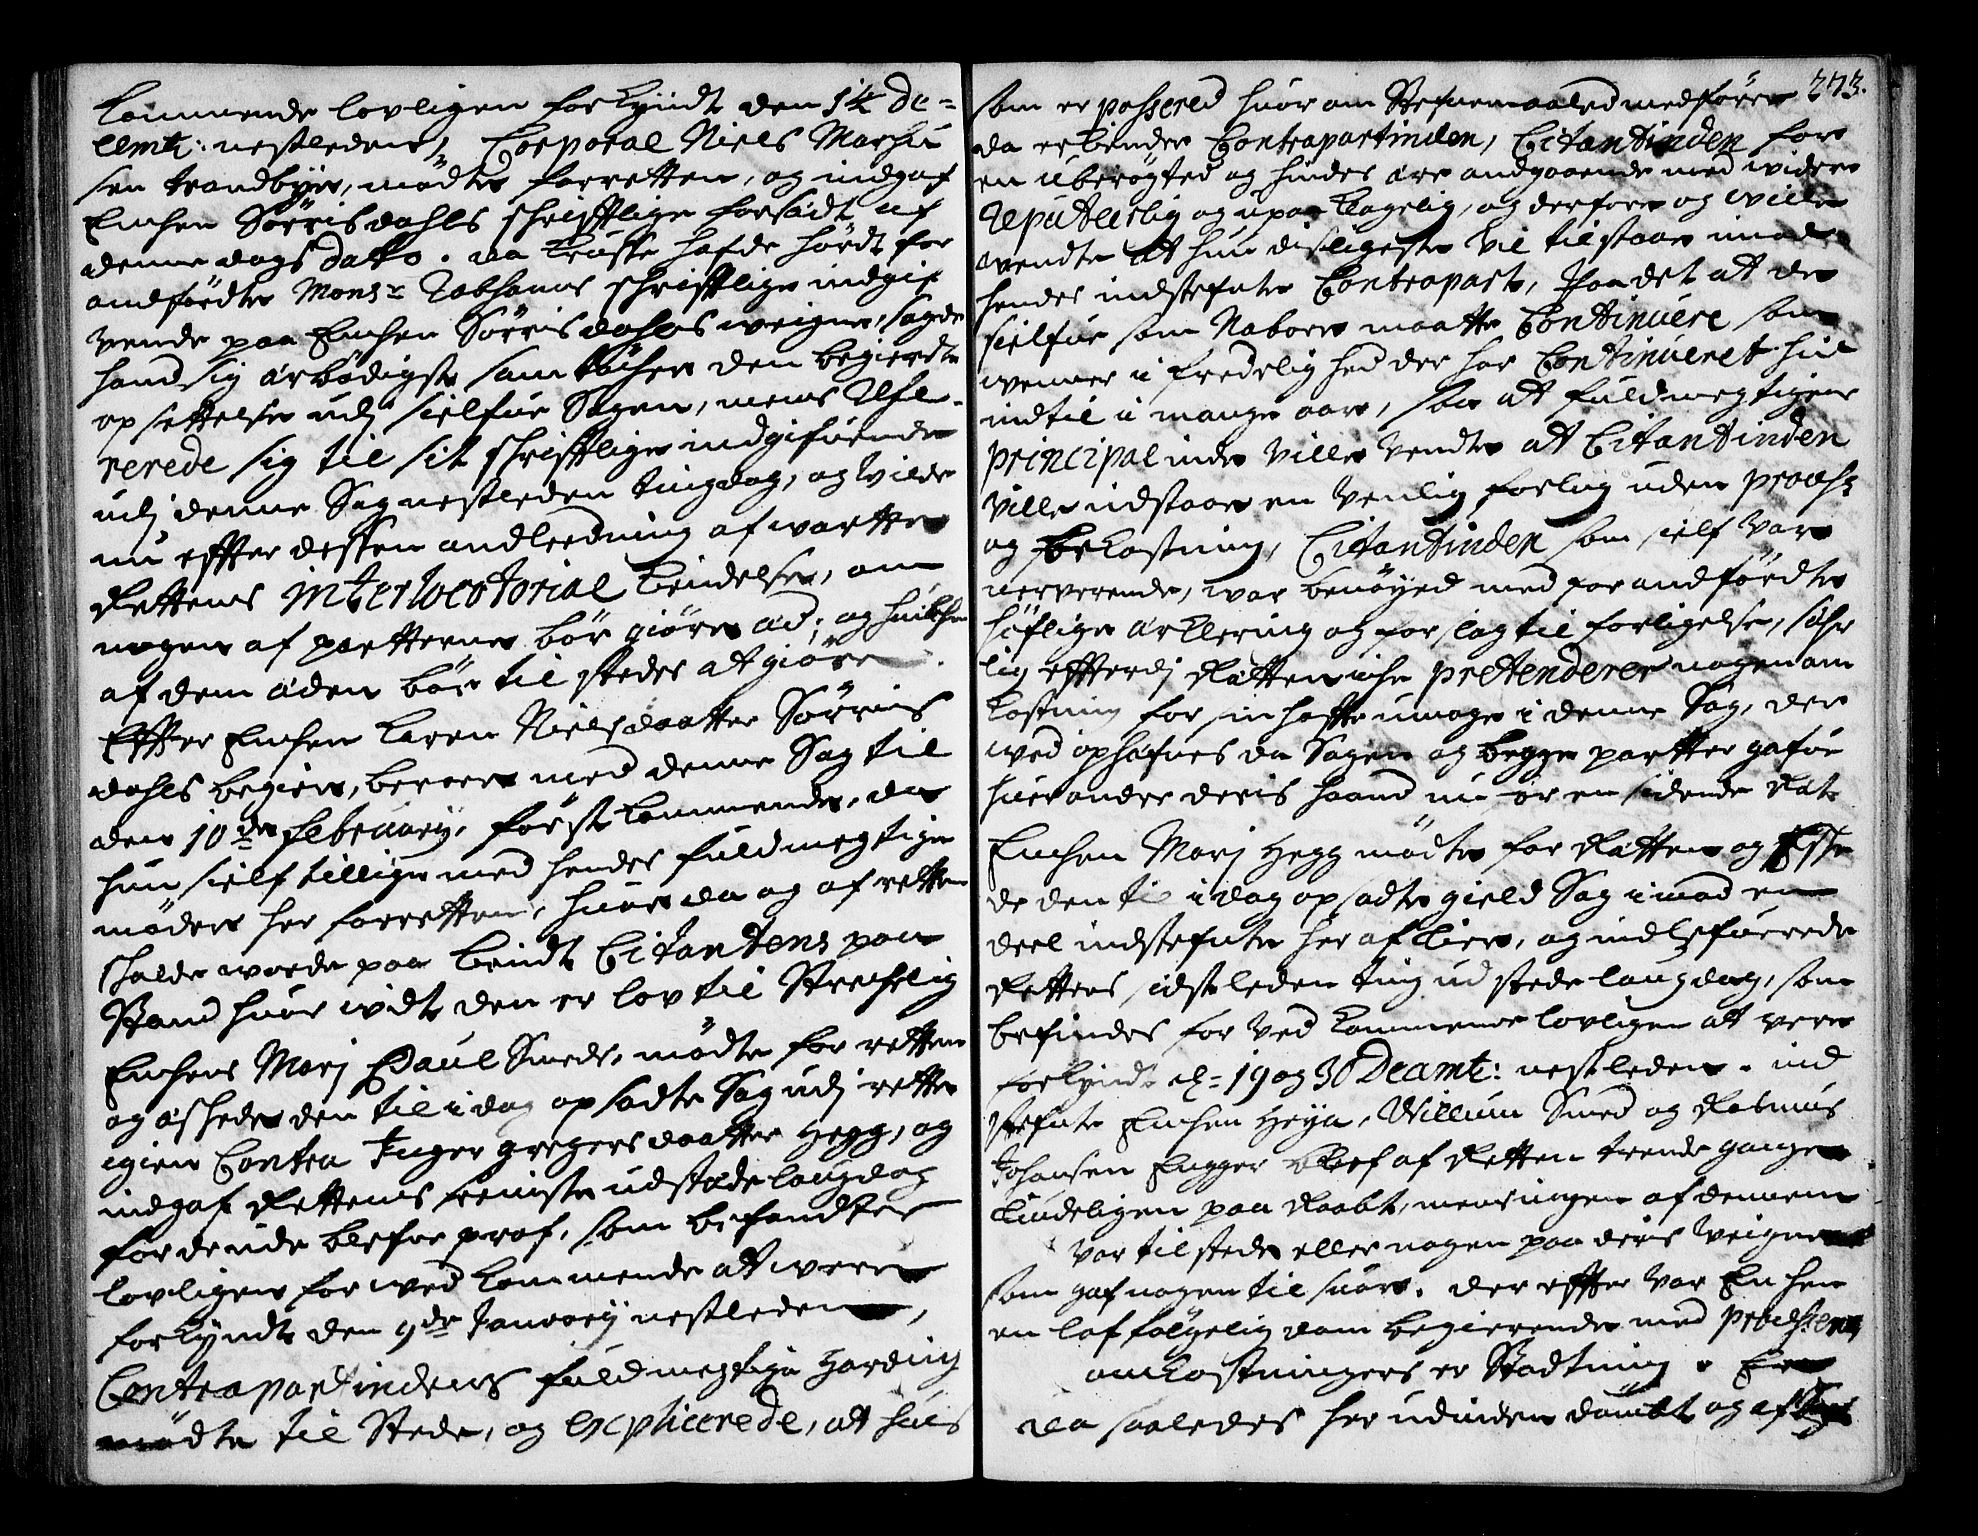 kommende lovligen forkÿndt den 14 De-
cembr: nestleden, Corporal Niels Marchu
sen trandbÿe, mødte for retten, og indgaf
Enchen Sørrisdahls schrifftlige forsædt af
denne dags dato. da Trusse hafde hørdt for
andførdte Monsr Jobhanns schrifftlige indgif
vende paa Enchen Sørrisdahls weigne, sagde
hand sig ærbødigst samtøcher den begierdte
opsettelse udj sielfue Sagen, mens Refe-
rerede sig til sit schrifftlige indgifuende
udj denne Sag nestleden tingdag, og vilde
nu effter dessen andleedning afvartte
Rettens interlocotorial kiendelse, om
nogen af partterne bør giøre æd, og huilchen
af dem æden bør til stedes at giøre.
Effter Enchen Karen Nielsdaatter Sørris
dahls begier, beroer med denne Sag til
den 10de februarÿ, først kommende, da
hun sielf tillige med hendes fuldmegtige
møder her for retten, huor da og af retten
schalde worde paa kiendt Citantens paa
Stand huor vidt den er lov til Strechelig
Enchens Marj Paul Smeds, mødte for retten
og æschede den til i dag opsadte Sag udj rette
igien Contra Inger gregersdaatter Hegg, og
indgaf Rettens seniste udstæde laugdag
forderude blefue prof, som befandtes
lovligen for wed kommende at were
forkÿndt den 9de Januarÿ nestleden,
Contrapartindens fuldmegtige Harding
mødte til Stede, og explicerede, at hues
273.
som er passered huor om Stefnemaaled medfører
da erkiender Contrapartinden, Citantinden for
en uberøgted og hindes ære andgaaende med widere
reputeerlig og upaaklagelig, og derfore og wille
wendte at hun disligeste vil tilstaae imod
hendes indstefnte Contrapart, Paa det at de
sielfue som Naboer maatte Continuere som
wenner i fredelighed der har Continueret hid
indtil i mange aar, saa at fuldmegtigens
principalinde ville vendte at Citantinden
ville indstaae en venlig forlig uden process
og bekostning, Citantinden som sielf var
nerverende, war benøyed med for andførdte
høflige ærklering og forslag til forligelse, sær
lig effterdj Retten iche pretenderer nogen om
kostning for sin haffte umage i denne Sag, der
wed ophæfues da Sagen og begge partter gafue
huer andre deris haand nu for en sidende Ret
Enchen Marj Hegg mødte for Retten og Esse
de den til i dag opsadte gield Sag imod en
deel indstefnte her af Lier, og indleferede
Rettens sidstleden ting udstede laugdag, som
befindes for ved kommende lovligen at vere
forkÿndt d: 19 og 30 Decembr: nestleden. ind
stefnte Enchen Heÿa, Willum Smed og Rasmus
Johansen Engger blef af Retten trende gange
kiendeligen paa Raabt, mens ingen af dennem
var tilstede eller nogen paa deris weigne
som gaf nogen til suar. der effter var Enchen
en laffølgelig dom begierende med processens
omkostningers erstadtning.
da saaledes her udinden dømbt og afsagt